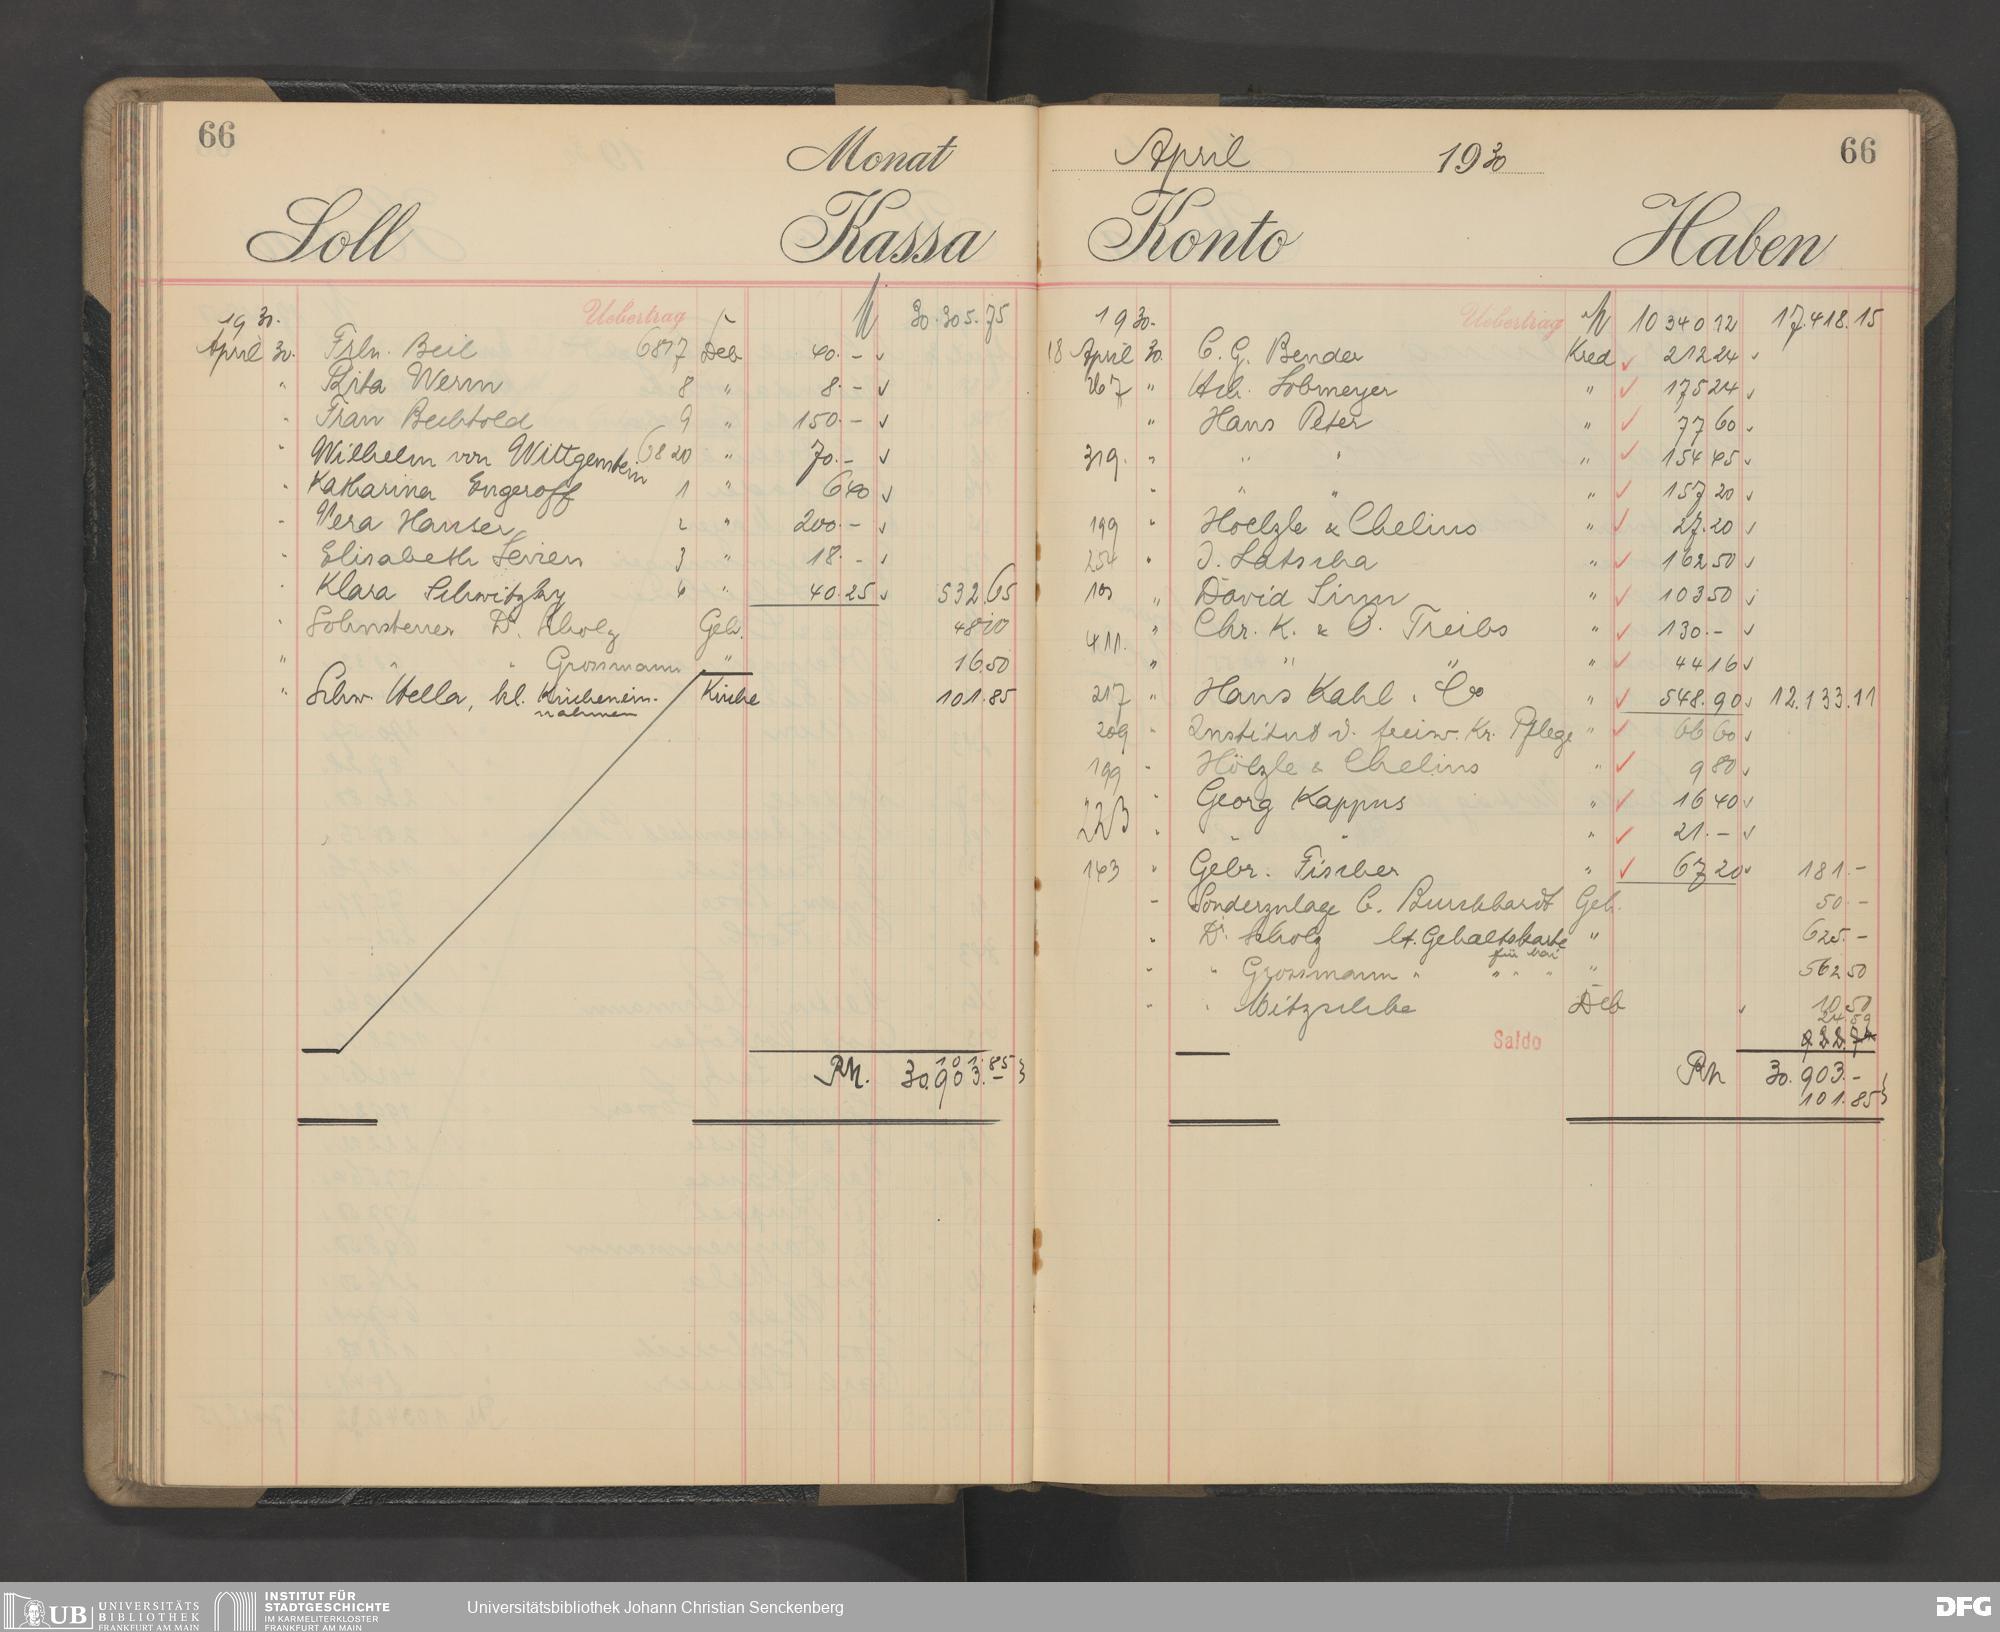 66
Monat
Soll Kassa
1930. Uebertrag M 30.305.75
April 30. Frln. Beil 6817 Deb 40.–
" Rita Werm 8 " 8.–
" Frau Bechtold 9 " 150.–
" Wilhelm von Wittgenstein 6820 " 70.–
" Katharina Engeroff 1 " 6 40
" Vera Hauser 2 " 200.–
" Elisabeth Sevien 3 " 18.–
" Klara Schwitzky 6 " 40.25 532.65
" Lohnsteuer Dr. Scholz Geh.
" " " Grossmann " 16.50
" Schw. Stella, kl. Kücheneinnahmen Küche 101.85
101.85
RM. 30.903.–
April 1930
66
Konto Haben
1930. Uebertrag M 10 340 12 17.418.15
18 April 30. C. G. Bender Kred 212 24
267 " Hch. Lobmeyer " 175 24
" Hans Peter " 77 60
319. " " " " 154 45
" " " " 157 20
199 " Hoelzle & Chelius " 27.20
254 " J. Latscha " 162 50
103 " David Sinn " 103 50
411. " Chr. K. & O. Treibs " 130.–
" " " " 44 16
217 " Hans Kahl & Co " 548.90 12.133.11
209 " Institut d. freiw. Kr. Pflege " 66 60
199 " Hölzle & Chelius " 9 80
223 " Georg Kappus " 16 40
" " " " 21.–
143 " Gebr. Fischer " 67 20 181.–
" Sonderzulage C. Burckhardt Geh. 50.–
" Dr. Scholz lt. Gehaltskarte " 625.–
für Mai
" " Grossmann " " " " " 562 50
" " Witzschke Deb 10.50
Saldo
RM 30.903.–
101.85
UB UNIVERSITÄTS
BIBLIOTHEK
FRANKFURT AM MAIN
INSTITUT FÜR
STADTGESCHICHTE
IM KARMELITERKLOSTER
FRANKFURT AM MAIN
Universitätsbibliothek Johann Christian Senckenberg
DFG